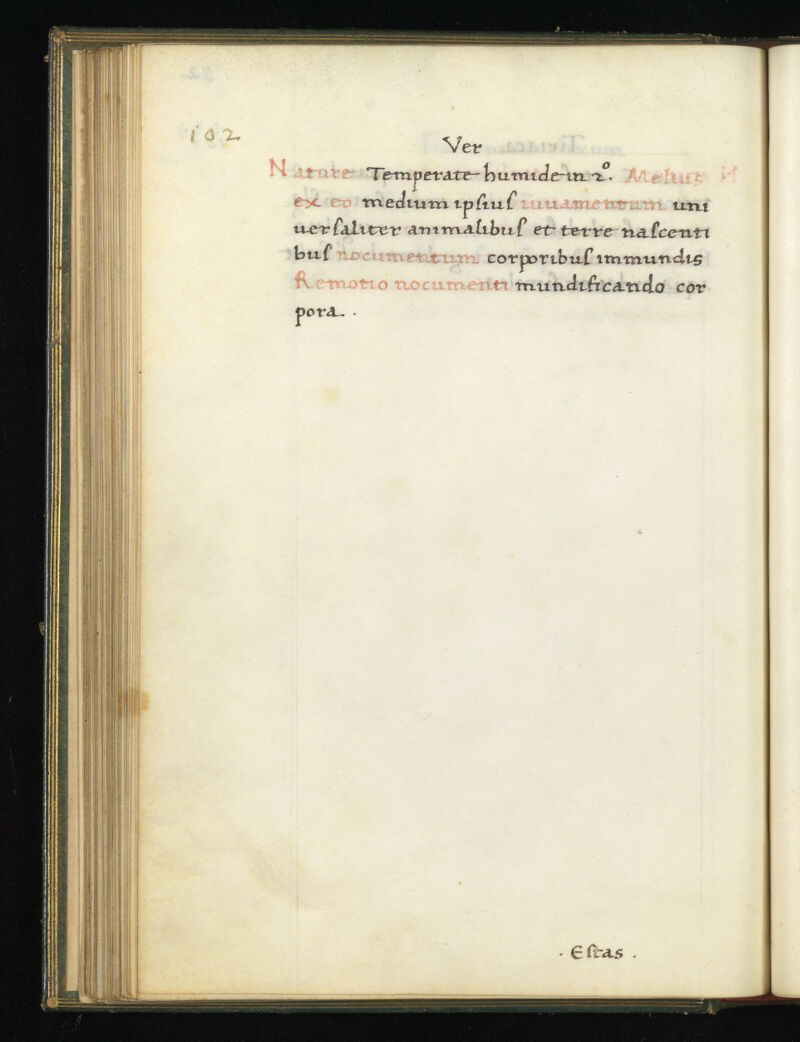 102
Ver
Nature Temperate humide in 2º. Melius
ex eo medium ipsius iuuamentum uni
uersaliter animalibus et terre nascenti
bus nocumentum corporibus immundis
Remotio nocumenti mundificando cor
pora .
· Estas .